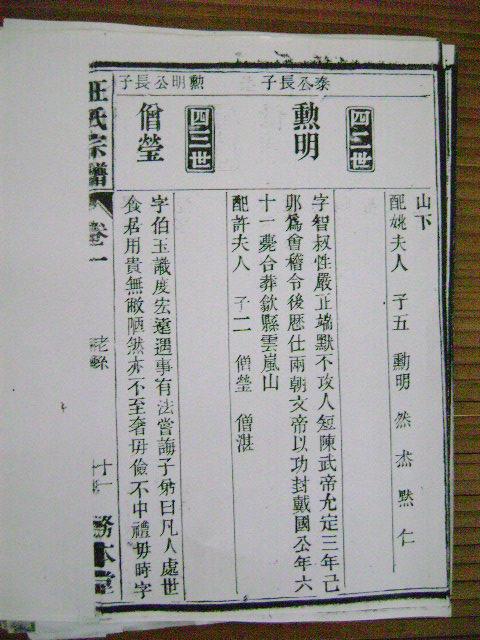 山下
配姚夫人 子五 勳明 然 杰 㸃 仁
四二世
泰公長子
勳明
字智叔性嚴正端默不攻人短陳武帝允定三年己
卯爲會稽令後歷仕兩朝文帝以功封戴國公年六
十一薨合葬歙縣雲嵐山
配許夫人 子二 僧瑩 僧湛
四三世
勳明公長子
僧瑩
字伯玉識度宏遠遇事有法嘗誨子弟曰凡人處世
食居用貴無敝陋然亦不至奢毋儉不中禮毋時字
汪氏宗譜 卷一
務本堂